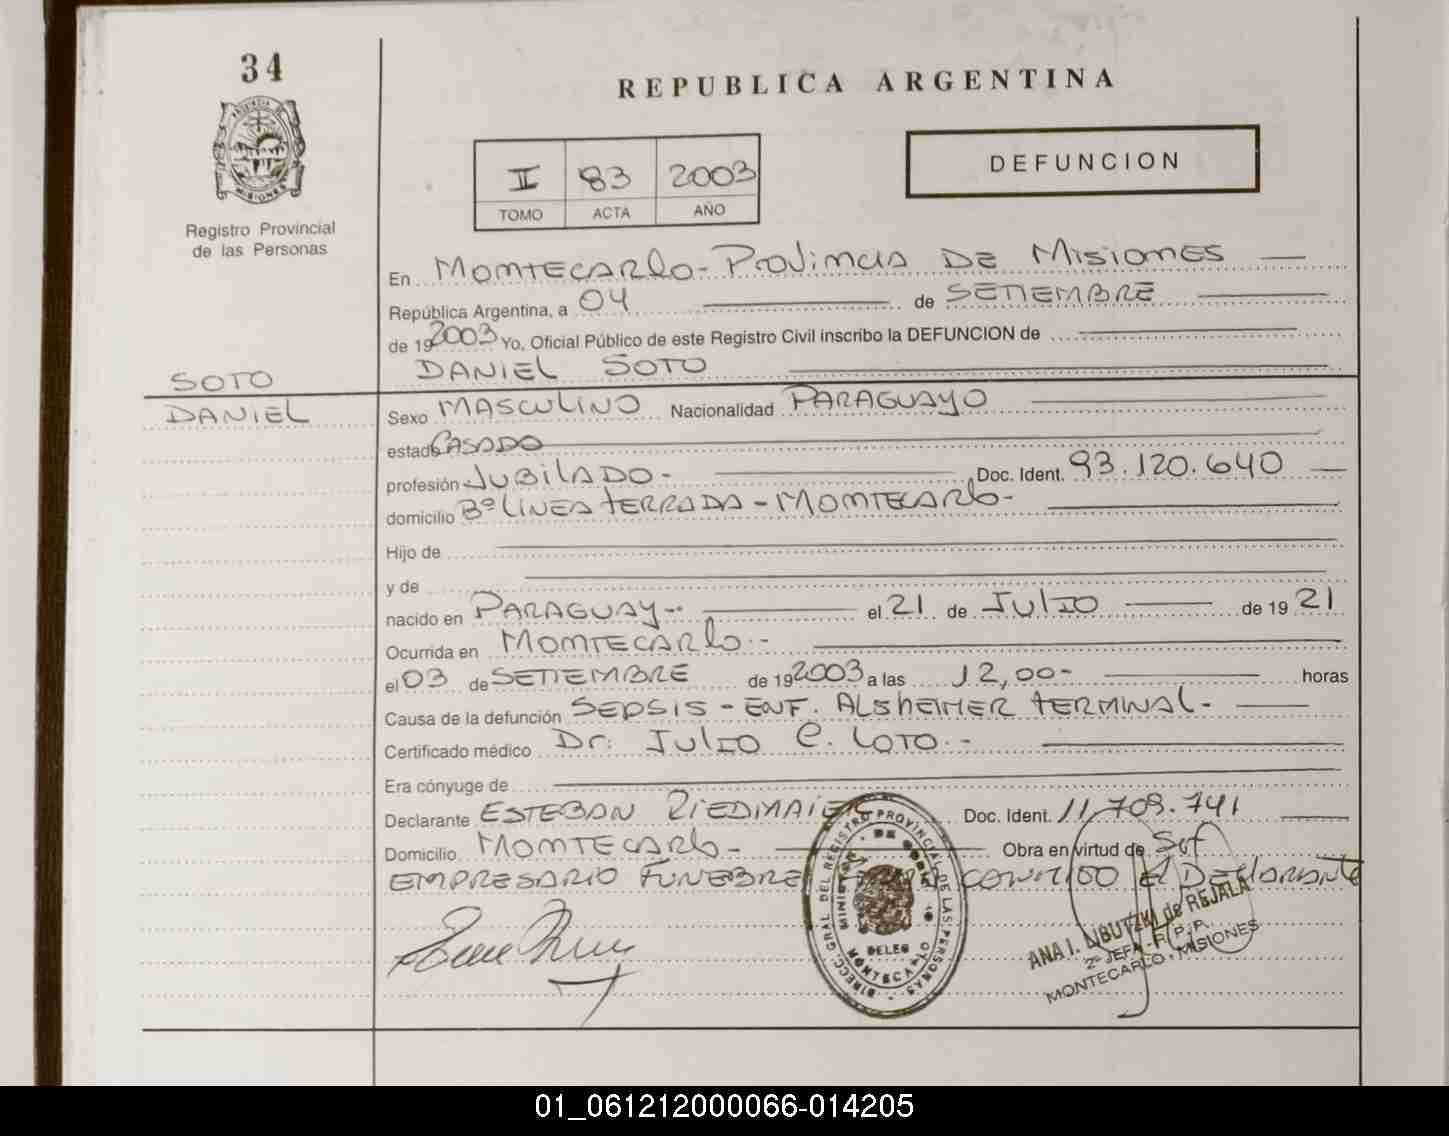 34
PROVINCIA DE
MISIONES
Registro Provincial
de las Personas
REPUBLICA ARGENTINA
II 83 2003
TOMO ACTA AÑO
DEFUNCION
En MONTECARLO - PROVINCIA DE MISIONES
República Argentina, a 04 de SETIEMBRE
de 192003 Yo, Oficial Público de este Registro Civil inscribo la DEFUNCION de
DANIEL SOTO
SOTO
DANIEL
Sexo MASCULINO Nacionalidad PARAGUAYO
estado CASADO
profesión JUBILADO - Doc. Ident. 93.120.640
domicilio Bº LINEA TERRADA - MONTECARLO -
Hijo de
y de
nacido en PARAGUAY - el 21 de JULIO de 19 21
Ocurrida en MONTECARLO -
el 03 de SETIEMBRE de 192003 a las 12,00 - horas
Causa de la defunción SEPSIS - ENF. ALSHEIMER TERMINAL -
Certificado médico Dr: JULIO C. LOTO -
Era cónyuge de
Declarante ESTEBAN RIEDMAIER Doc. Ident. 11.709.741
Domicilio MONTECARLO - Obra en virtud de Ser
EMPRESARIO FUNEBRE CONMIGO El DEClARANTE
DIRECC. GRAL. DEL REGISTRO PROVINCIAL DE LAS PERSONAS
DELEG
MONTECARLO
ANA I. LIBUTZKI de REJALA
2ª JEFA - R. P. P.
MONTECARLO - MISIONES
01_061212000066-014205